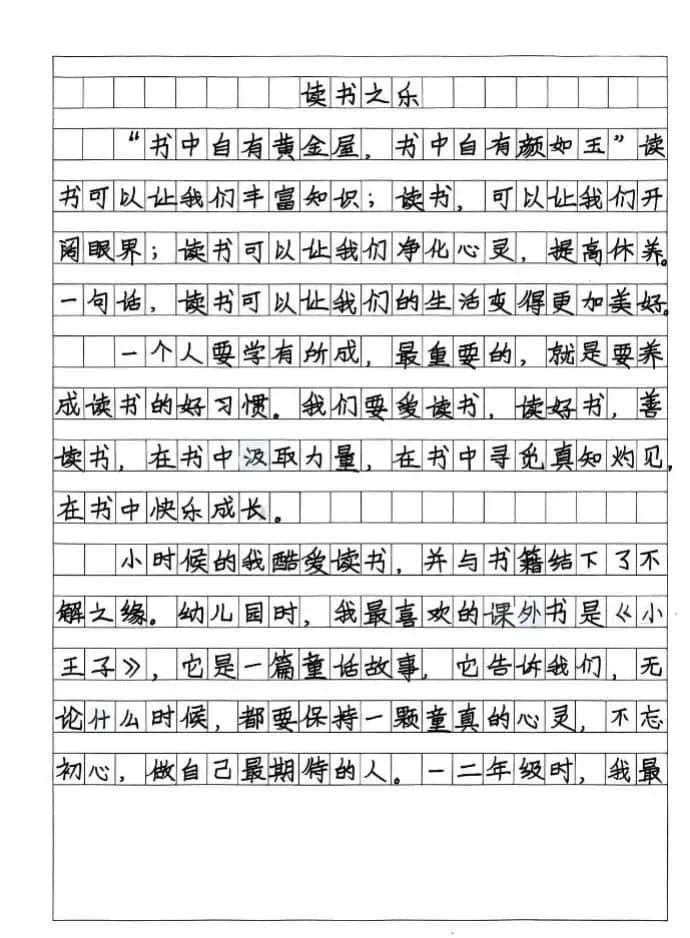 读书之乐
“书中自有黄金屋，书中自有颜如玉”读
书可以让我们丰富知识；读书，可以让我们开
阔眼界；读书可以让我们净化心灵，提高休养。
一句话，读书可以让我们的生活变得更加美好。
一个人要学有所成，最重要的，就是要养
成读书的好习惯。我们要爱读书，读好书，善
读书，在书中汲取力量，在书中寻觅真知灼见，
在书中快乐成长。
小时候的我酷爱读书，并与书籍结下了不
解之缘。幼儿园时，我最喜欢的课外书是《小
王子》，它是一篇童话故事，它告诉我们，无
论什么时候，都要保持一颗童真的心灵，不忘
初心，做自己最期待的人。一二年级时，我最